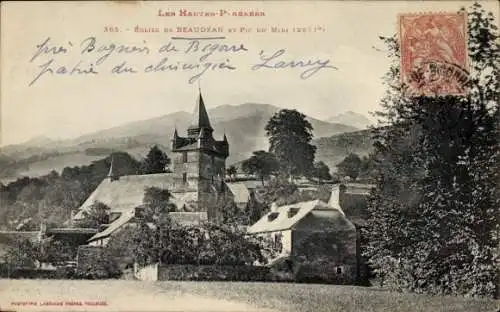 LES HAUTES-PYRÉNÉES
365. ÉGLISE DE BEAUDÉAN ET PIC DU MIDI (2877m)
près Bagnères de Bigorre
patrie du chirurgien Larrey
PHOTOTYPIE LABOUCHE FRÈRES, TOULOUSE.